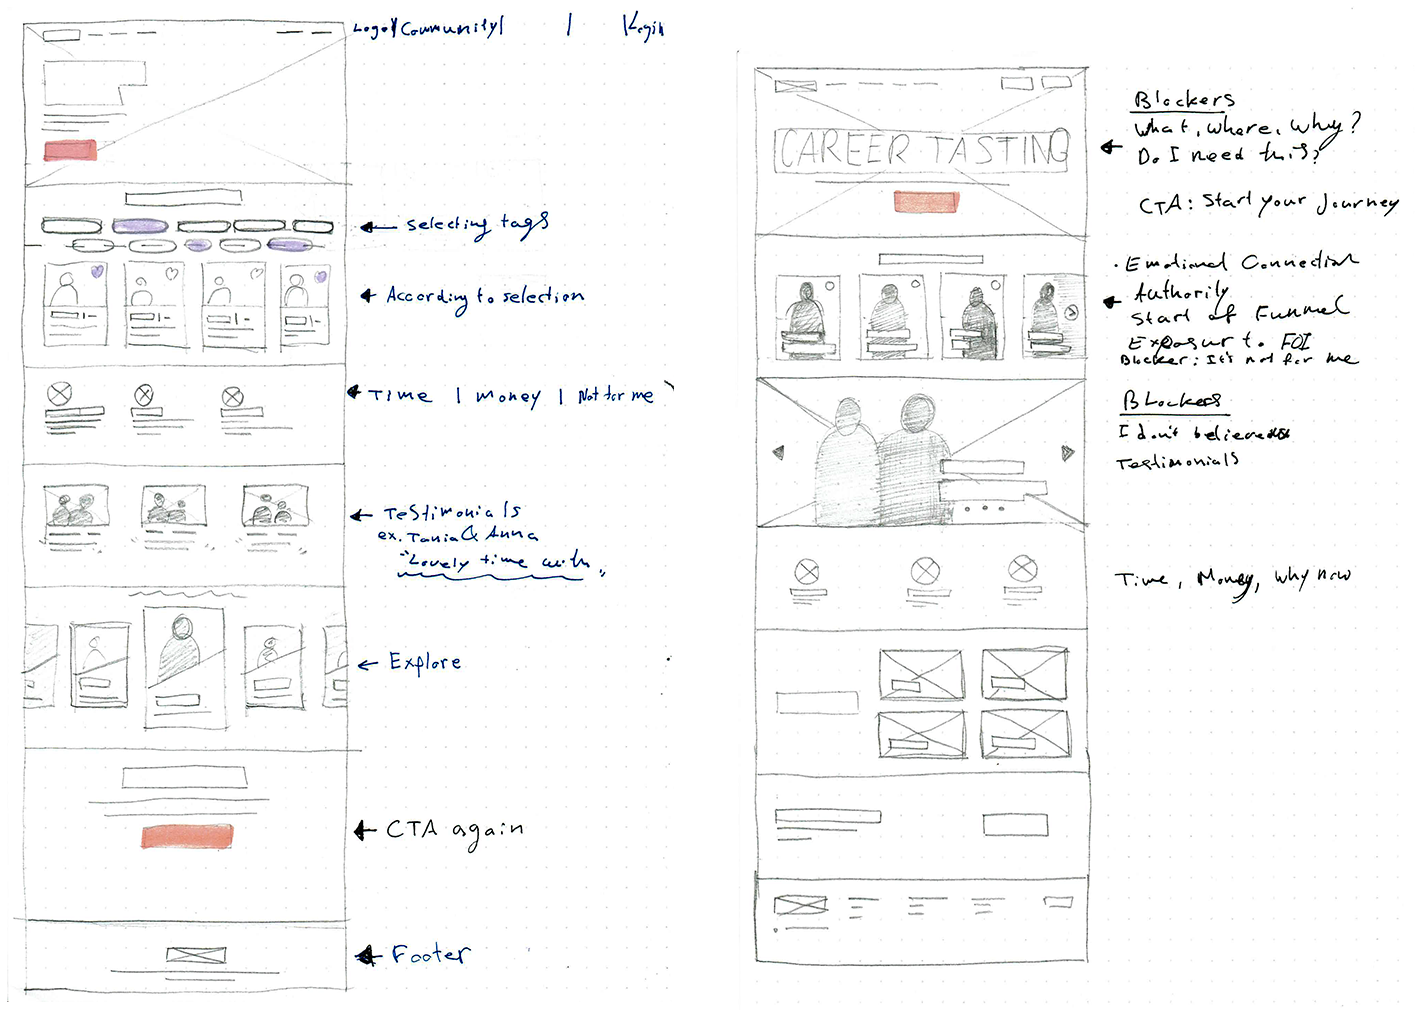 Logo | Community | | | Login
selecting tags
According to selection
Time | money | Not for me
Testimonials
ex. Tania & Anna
"Lovely time with,,
Explore
CTA again
Footer
CAREER TASTING
Blockers
What, where, Why?
Do I need this?
CTA: Start your Journey
. Emotional Connection
Authority
Start of Funnel
Exposur to FOI
Blocker: It's not for me
Blockers
I don't believe
Testimonials
Time, Money, why now